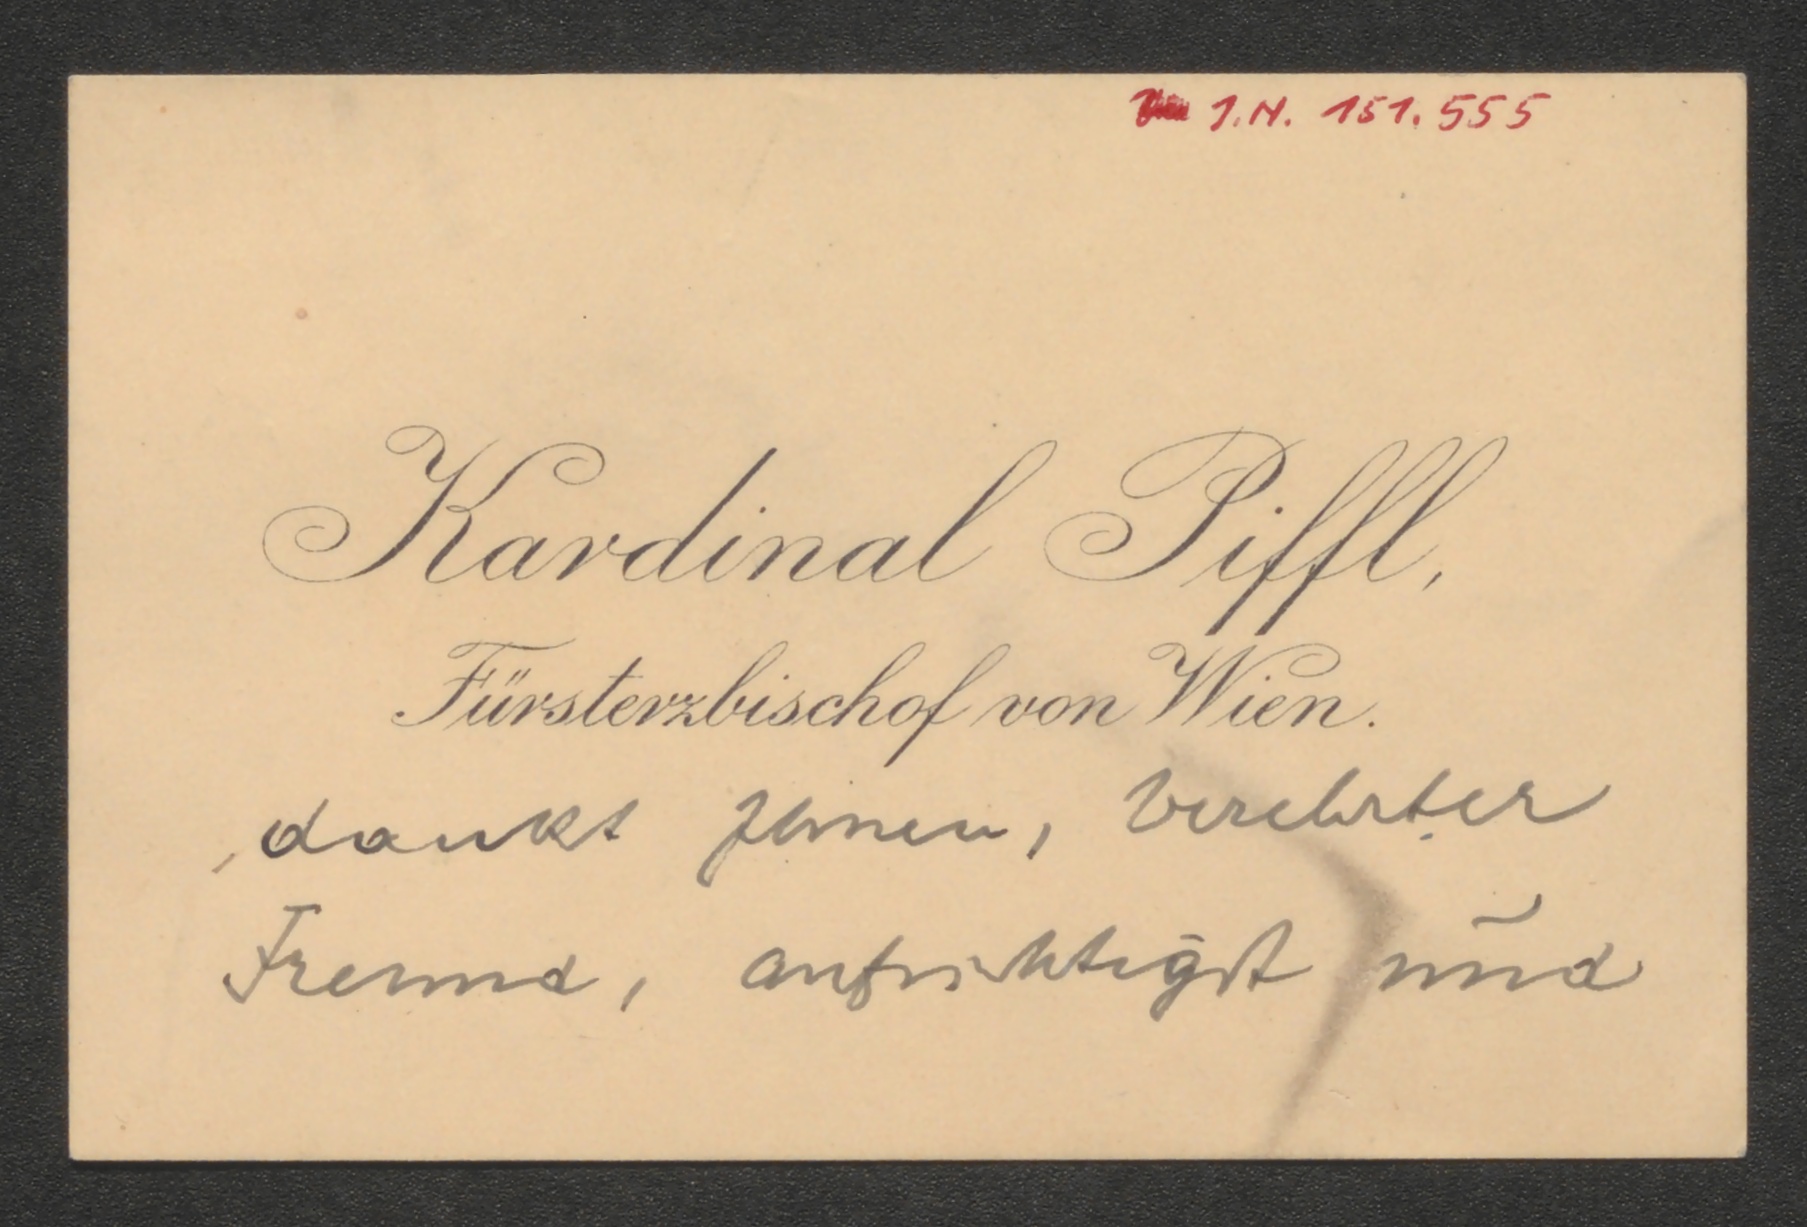 J.N. 151.555
Kardinal Piffl,
Fürsterzbischof von Wien.
dankt Ihnen, Verehrter
Freund, aufrichtigst und